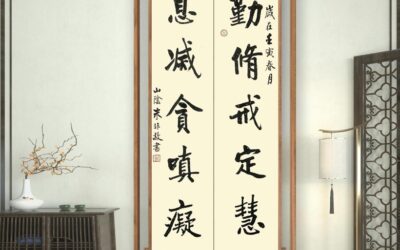 歲在壬寅春月
勤脩戒定慧
息滅貪嗔癡
山陰
書